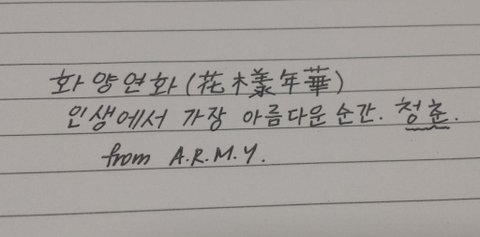 화양연화(花樣年華)
인생에서 가장 아름다운 순간. 청춘.
from A.R.M.Y.